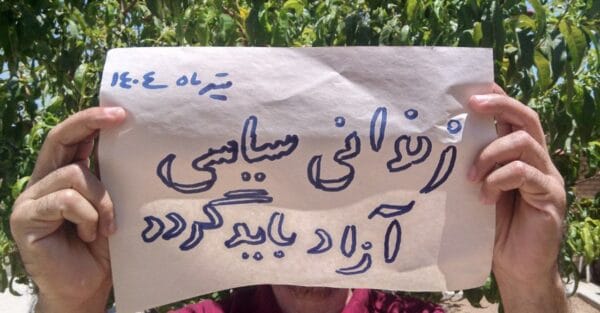 تیرماه ۱۴۰۴
زندانی سیاسی
آزاد باید گردد